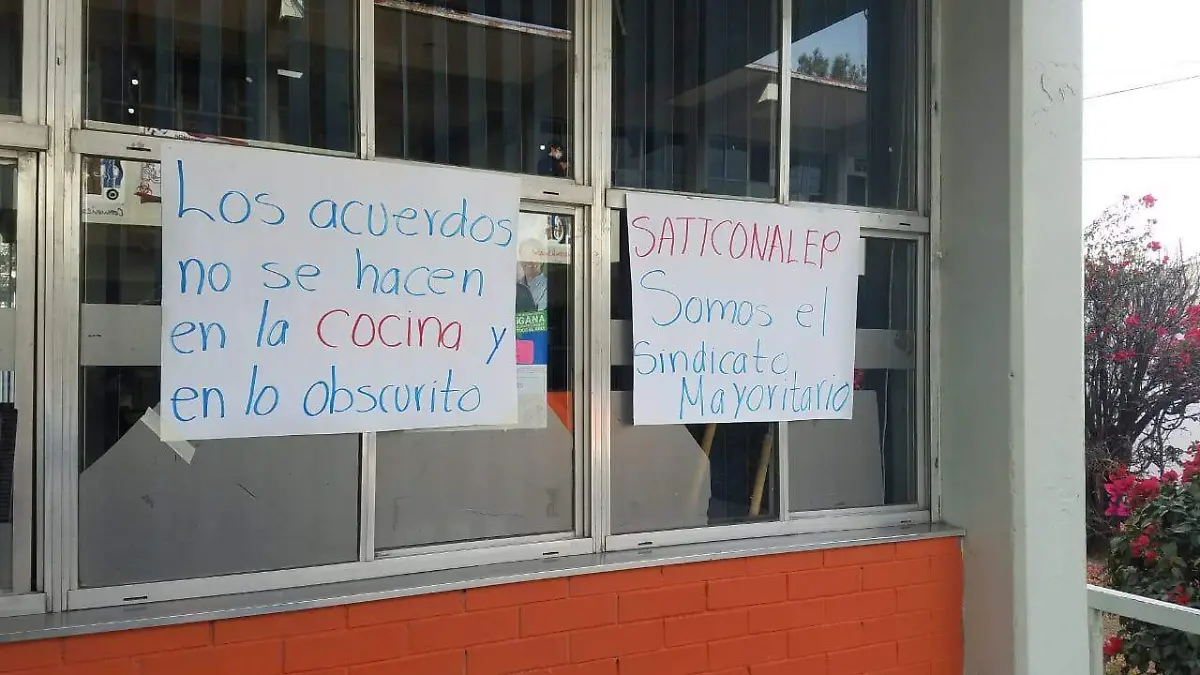 Los acuerdos
no se hacen
en la cocina y
en lo obscurito
SATTCONALEP
Somos el
Sindicato
Mayoritario
GANA